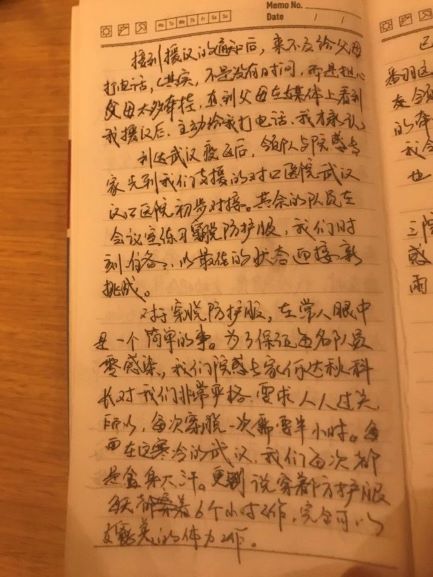 Memo No.
Date / /
接到援汉的通知后，来不及给父母
打电话，(其实，不是没有时间，而是担心
父母太牵挂，直到父母在媒体上看到
我援汉后，主动给我打电话，我才承认)
到达武汉疫区后，领队与院感专
家先到我们支援的对口医院武汉
汉口医院初步对接。其余的队员在
会议室练习穿脱防护服，我们时
刻准备，以最佳的状态迎接新
挑战。
对于穿脱防护服，在常人眼中
是一个简单的事。为了保证每名队员
零感染，我们院感专家何达秋科
长对我们非常严格，要求人人过关
所以，每次穿脱一次都要半小时。
而在这寒冷的武汉，我们每次都
是全身大汗。更别说穿着防护服
每天都 6个小时工作，完全可以
的体力工作。
三院
感
雨